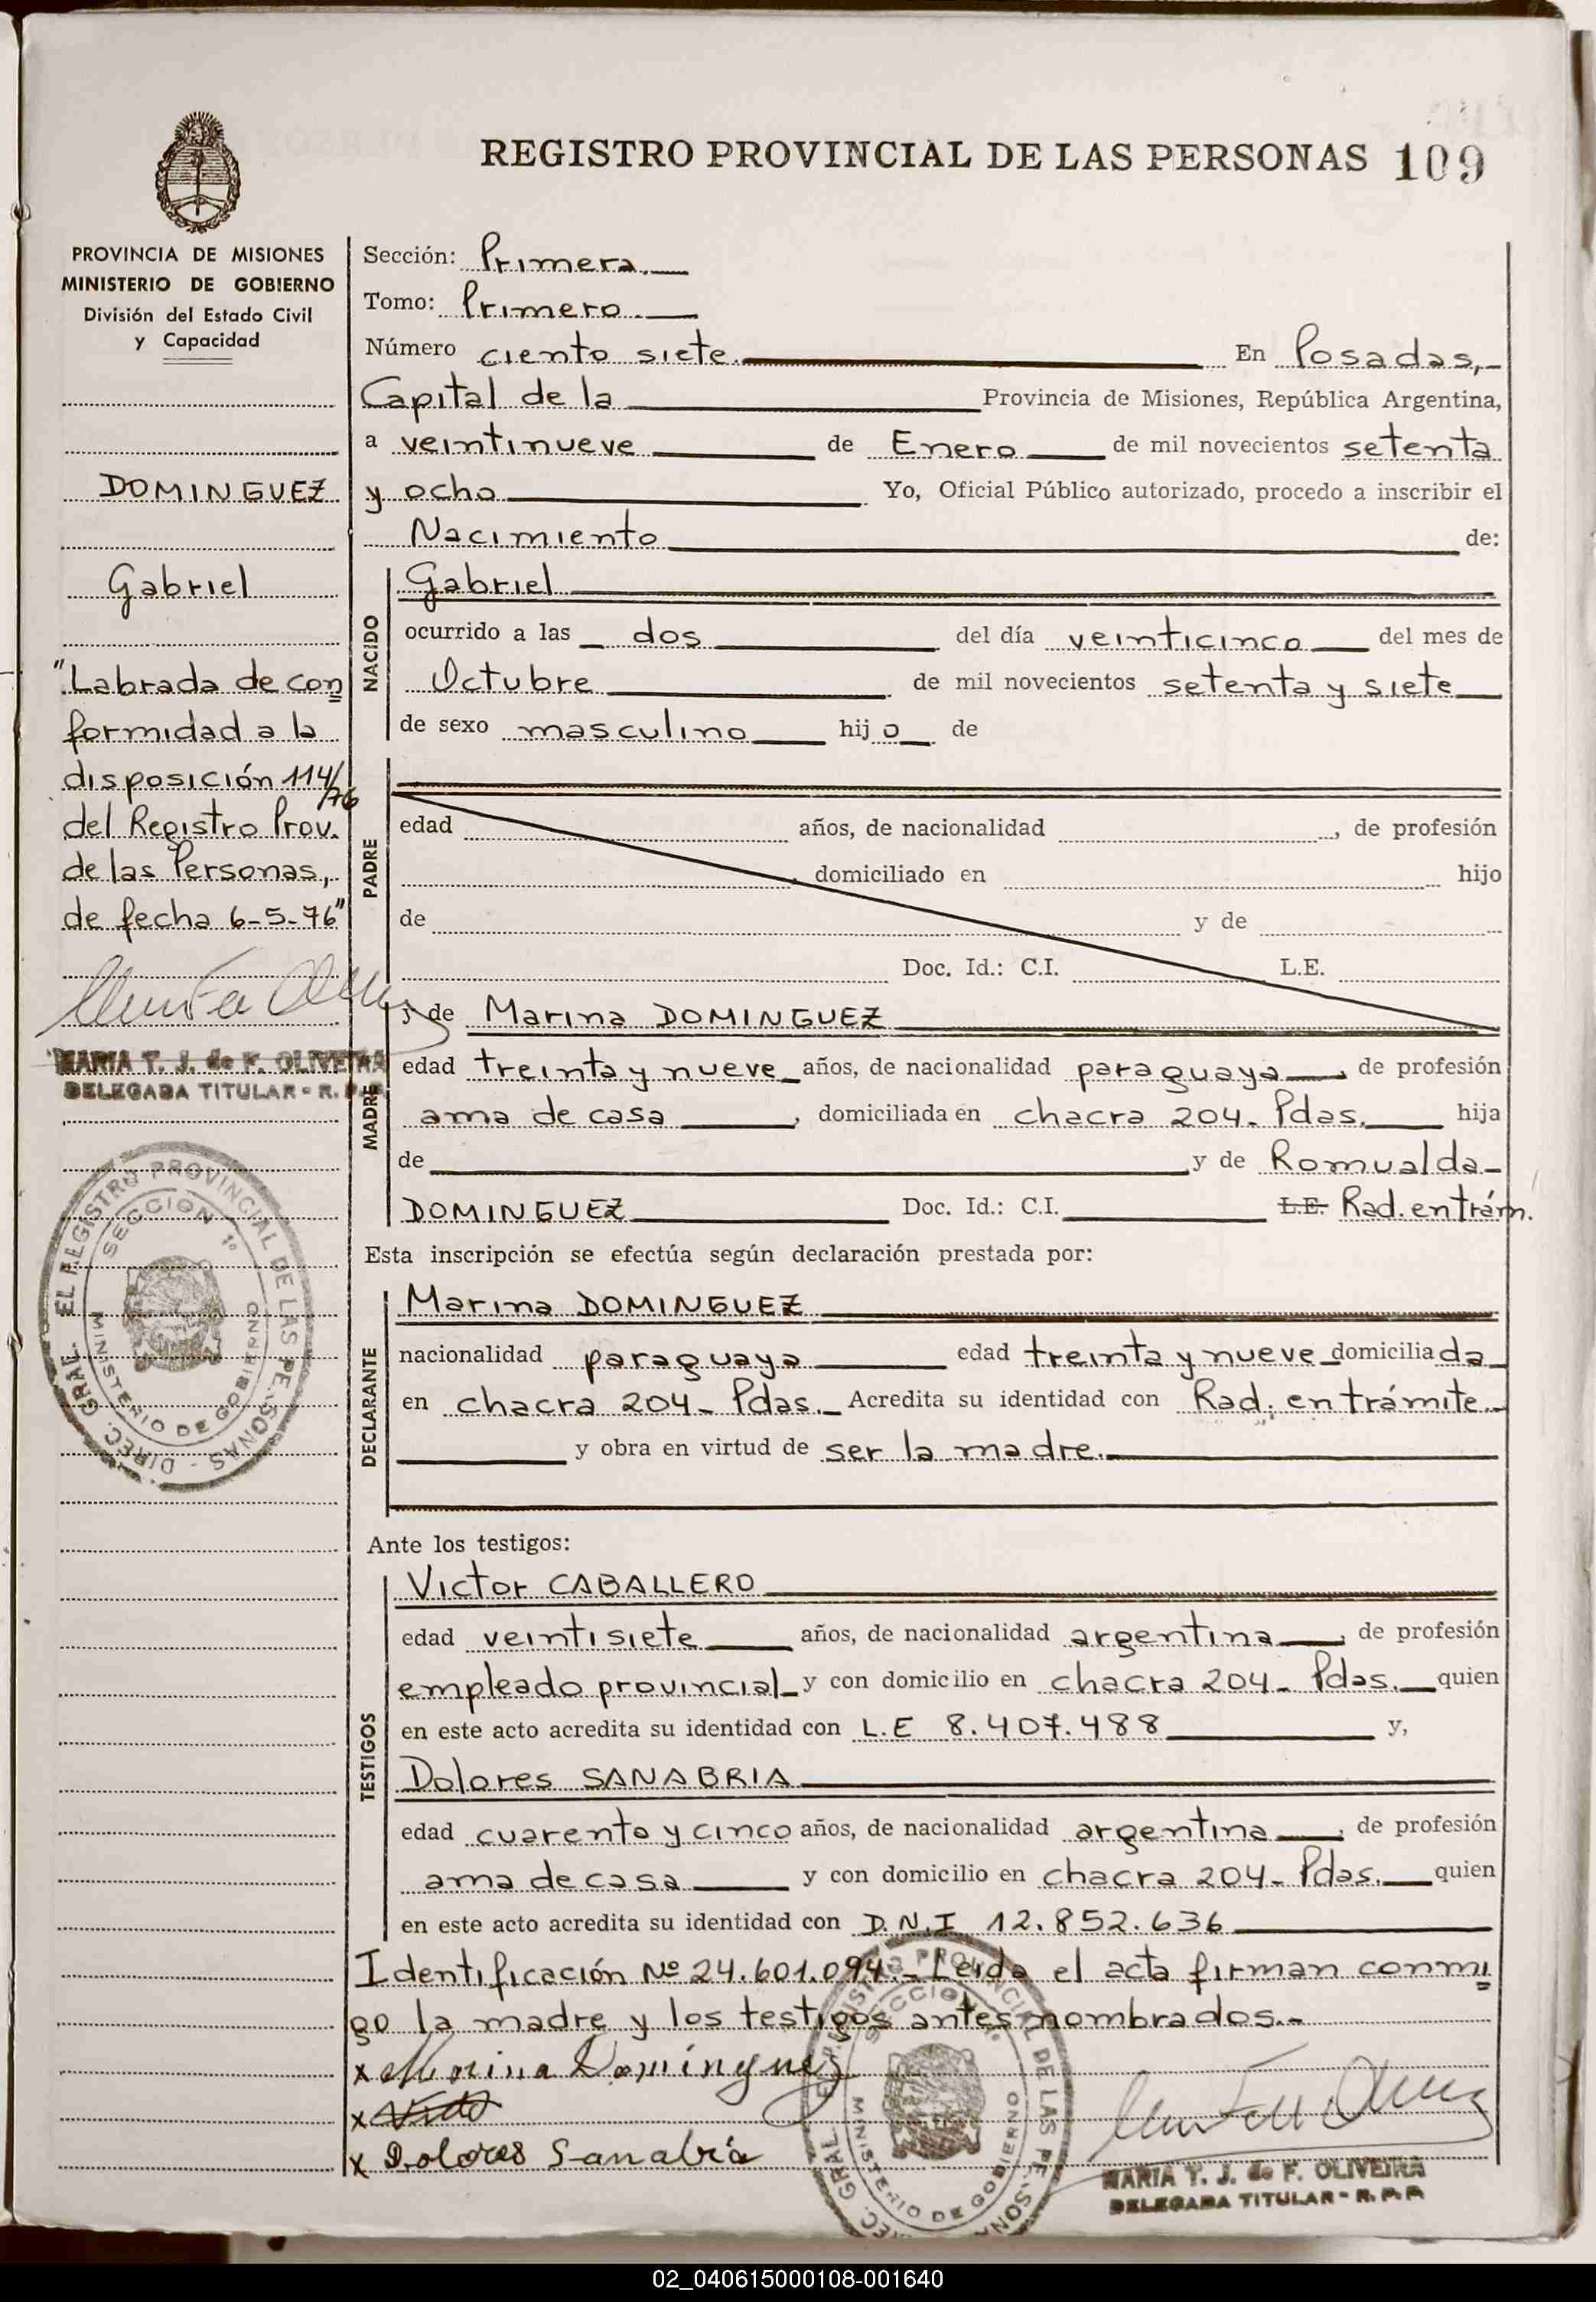 REGISTRO PROVINCIAL DE LAS PERSONAS 109
PROVINCIA DE MISIONES
MINISTERIO DE GOBIERNO
División del Estado Civil
y Capacidad
DOMINGUEZ
Gabriel
"Labrada de con
formidad a la
disposición 114/
76
del Registro Prov.
de las Personas,
de fecha 6-5-76"
MARIA T. J. de F. OLIVEIRA
DELEGADA TITULAR - R. P. P.
DIREC. GRAL. EL REGISTRO PROVINCIAL DE LAS PERSONAS
SECCION 1º
MINISTERIO DE GOBIERNO
Sección: Primera.
Tomo: Primero.
Número ciento siete. En Posadas,
Capital de la Provincia de Misiones, República Argentina,
a veintinueve de Enero de mil novecientos setenta
y ocho. Yo, Oficial Público autorizado, procedo a inscribir el
Nacimiento de:
NACIDO
Gabriel
ocurrido a las dos del día veinticinco del mes de
Octubre de mil novecientos setenta y siete
de sexo masculino hijo de
PADRE
edad años, de nacionalidad , de profesión
, domiciliado en hijo
de y de
Doc. Id.: C.I. L.E.
MADRE
y de Marina DOMINGUEZ
edad treinta y nueve años, de nacionalidad paraguaya, de profesión
ama de casa, domiciliada en chacra 204. Pdas. hija
de y de Romualda
DOMINGUEZ Doc. Id.: C.I. L.E. Rad. en trám.
Esta inscripción se efectúa según declaración prestada por:
DECLARANTE
Marina DOMINGUEZ
nacionalidad paraguaya edad treinta y nueve domiciliada
en chacra 204- Pdas. Acredita su identidad con Rad. en trámite.
y obra en virtud de ser la madre.
Ante los testigos:
TESTIGOS
Victor CABALLERO
edad veintisiete años, de nacionalidad argentina, de profesión
empleado provincial y con domicilio en chacra 204- Pdas. quien
en este acto acredita su identidad con L.E 8.407.488 y,
Dolores SANABRIA
edad cuarenta y cinco años, de nacionalidad argentina, de profesión
ama de casa y con domicilio en chacra 204- Pdas. quien
en este acto acredita su identidad con D.N.I 12.852.636
Identificación Nº 24.601.094.- Leida el acta firman conmi
go la madre y los testigos antes nombrados.-
x Marina Dominguez
x
x Dolores Sanabria
DIREC. GRAL. EL REGISTRO PROVINCIAL DE LAS PERSONAS
SECCION 1º
MINISTERIO DE GOBIERNO
MARIA T. J. de F. OLIVEIRA
DELEGADA TITULAR - R. P. P.
02_040615000108-001640